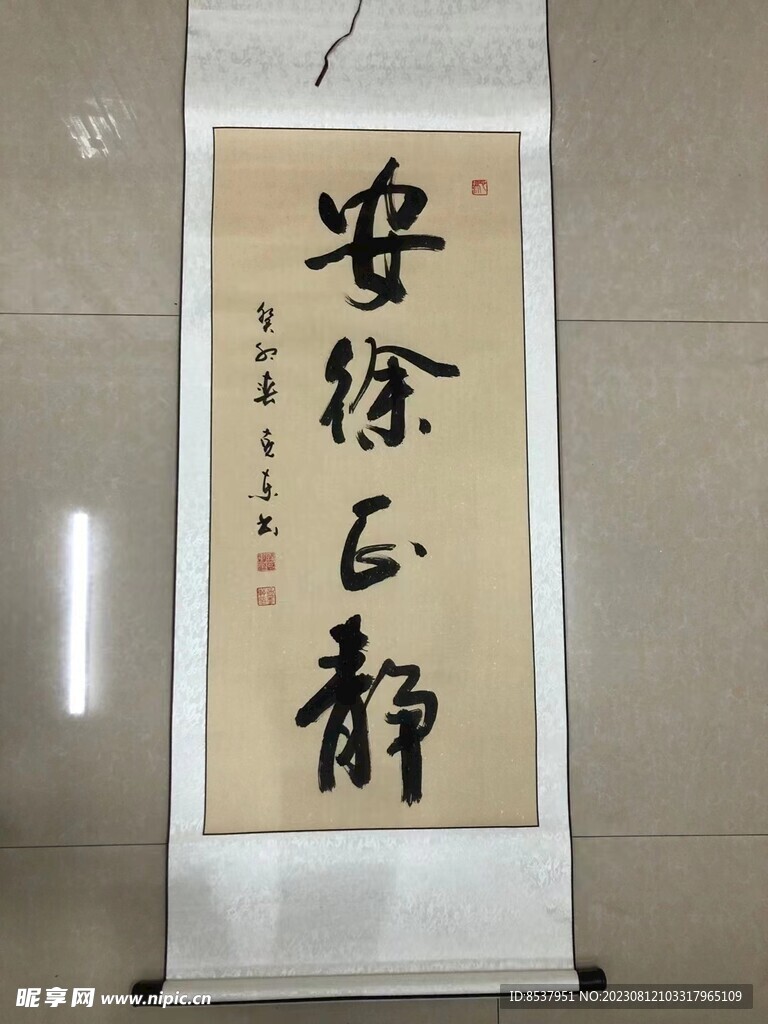 安徐正静
癸卯春 克东书
昵享网 www.nipic.cn
ID:8537951 NO:20230812103317965109